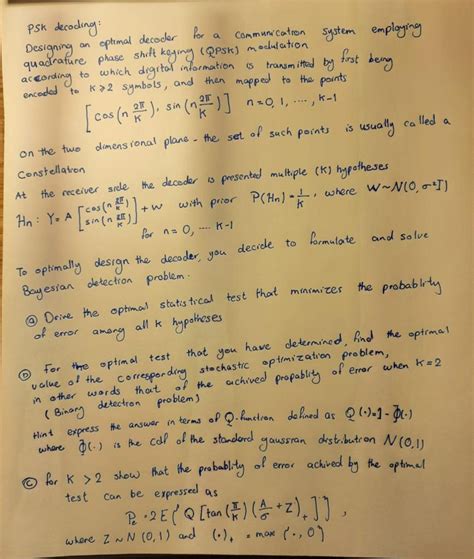 PSK decoding:
Designing an optimal decoder for a communication system employing
quadrature phase shift keying (QPSK) modulation
according to which digital information is transmitted by first being
encoded to K≥2 symbols, and then mapped to the points
[cos(n 2π/K), sin(n 2π/K)] n=0,1, .... , K-1
on the two dimensional plane - the set of such points is usually called a
Constellation
At the receiver side the decoder is presented multiple (K) hypotheses
Hn: Y = A [cos(n 2π/K) sin(n 2π/K)] + W with prior P(Hn) = 1/K, where W~N(0, σ²I)
for n = 0, .... K-1
To optimally design the decoder, you decide to formulate and solve
Bayesian detection problem.
(a) Drive the optimal statistical test that minimizes the probablity
of error among all K hypotheses
(b) For the optimal test that you have determined, find the optimal
value of the corresponding stochastic optimization problem,
in other words that of the achived propablity of error when K=2
(Binary detection problem)
Hint express the answer in terms of Q-function defined as Q(·)=1-Φ(·)
where Φ(·) is the cdf of the standard gaussian distribution N(0,1)
(c) for K > 2 show that the probablity of error achived by the optimal
test can be expressed as
Pe = 2E{Q[tan(π/K)(A/σ + Z)+]},
where Z ~ N(0,1) and (·)+ = max(·,0)